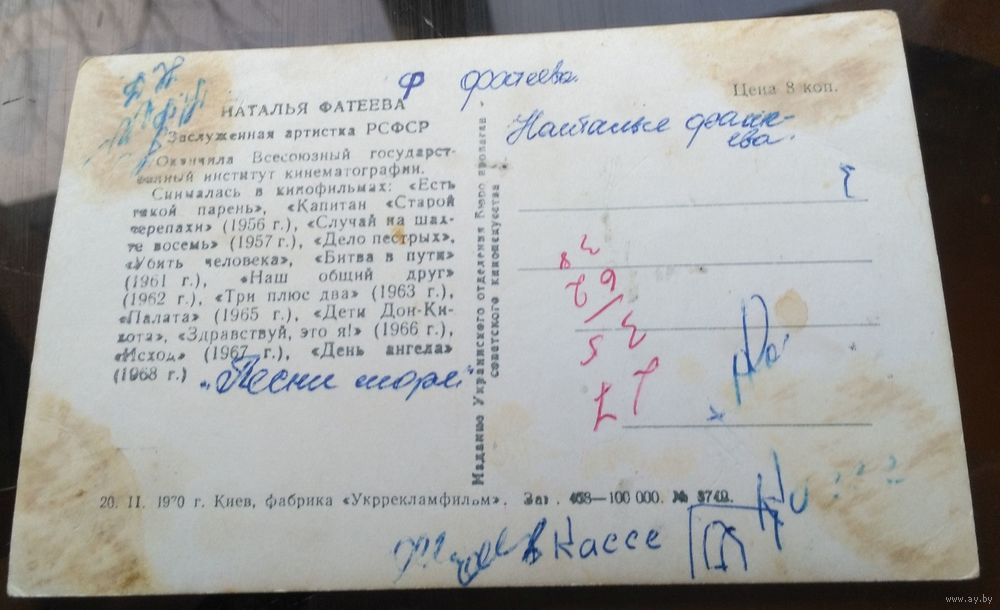 Ф Фатеева.
НАТАЛЬЯ ФАТЕЕВА
Заслуженная артистка РСФСР
Окончила Всесоюзный государст-
венный институт кинематографии.
Снималась в кинофильмах: «Есть
такой парень», «Капитан «Старой
черепахи» (1956 г.), «Случай на шах-
те восемь» (1957 г.), «Дело пестрых»,
«Убить человека», «Битва в пути»
(1961 г.), «Наш общий друг»
(1962 г.), «Три плюс два» (1963 г.),
«Палата» (1965 г.), «Дети Дон-Ки-
хота», «Здравствуй, это я!» (1966 г.),
«Исход» (1967 г.), «День ангела»
(1968 г.)
„Песни моря"
Издание Украинского отделения Бюро пропаган
советского киноискусства
Цена 8 коп.
Наталья Фати-
ева.
20. II. 1970 г. Киев, фабрика «Укррекламфильм». Заг. 458—100 000. № 3749.
в Кассе
www.ay.by